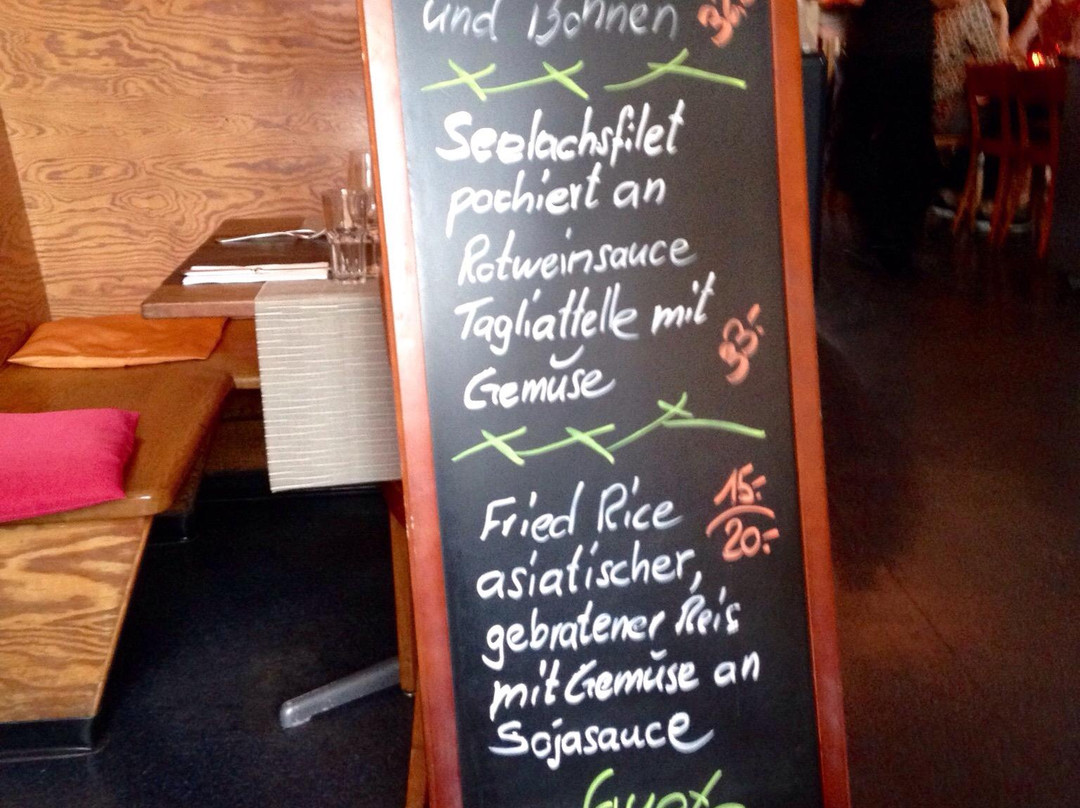 und Bohnen 36.-
Seelachsfilet
pochiert an
Rotweinsauce
Tagliattelle mit
Gemüse 33.-
Fried Rice 15.-
20.-
asiatischer,
gebratener Reis
mit Gemüse an
Sojasauce